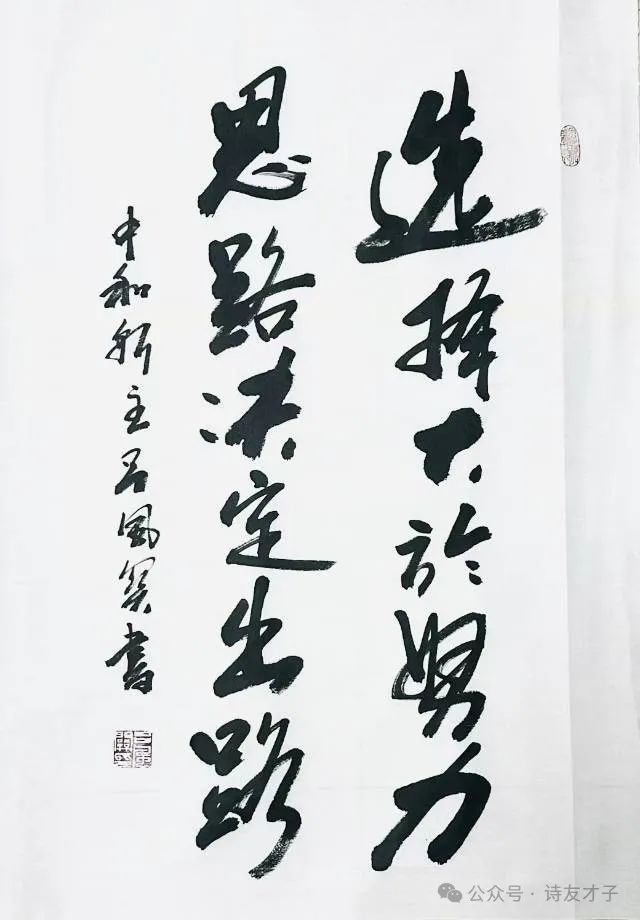 选择大於努力
思路决定出路
中和轩主吕凤翼书
公众号·诗友才子